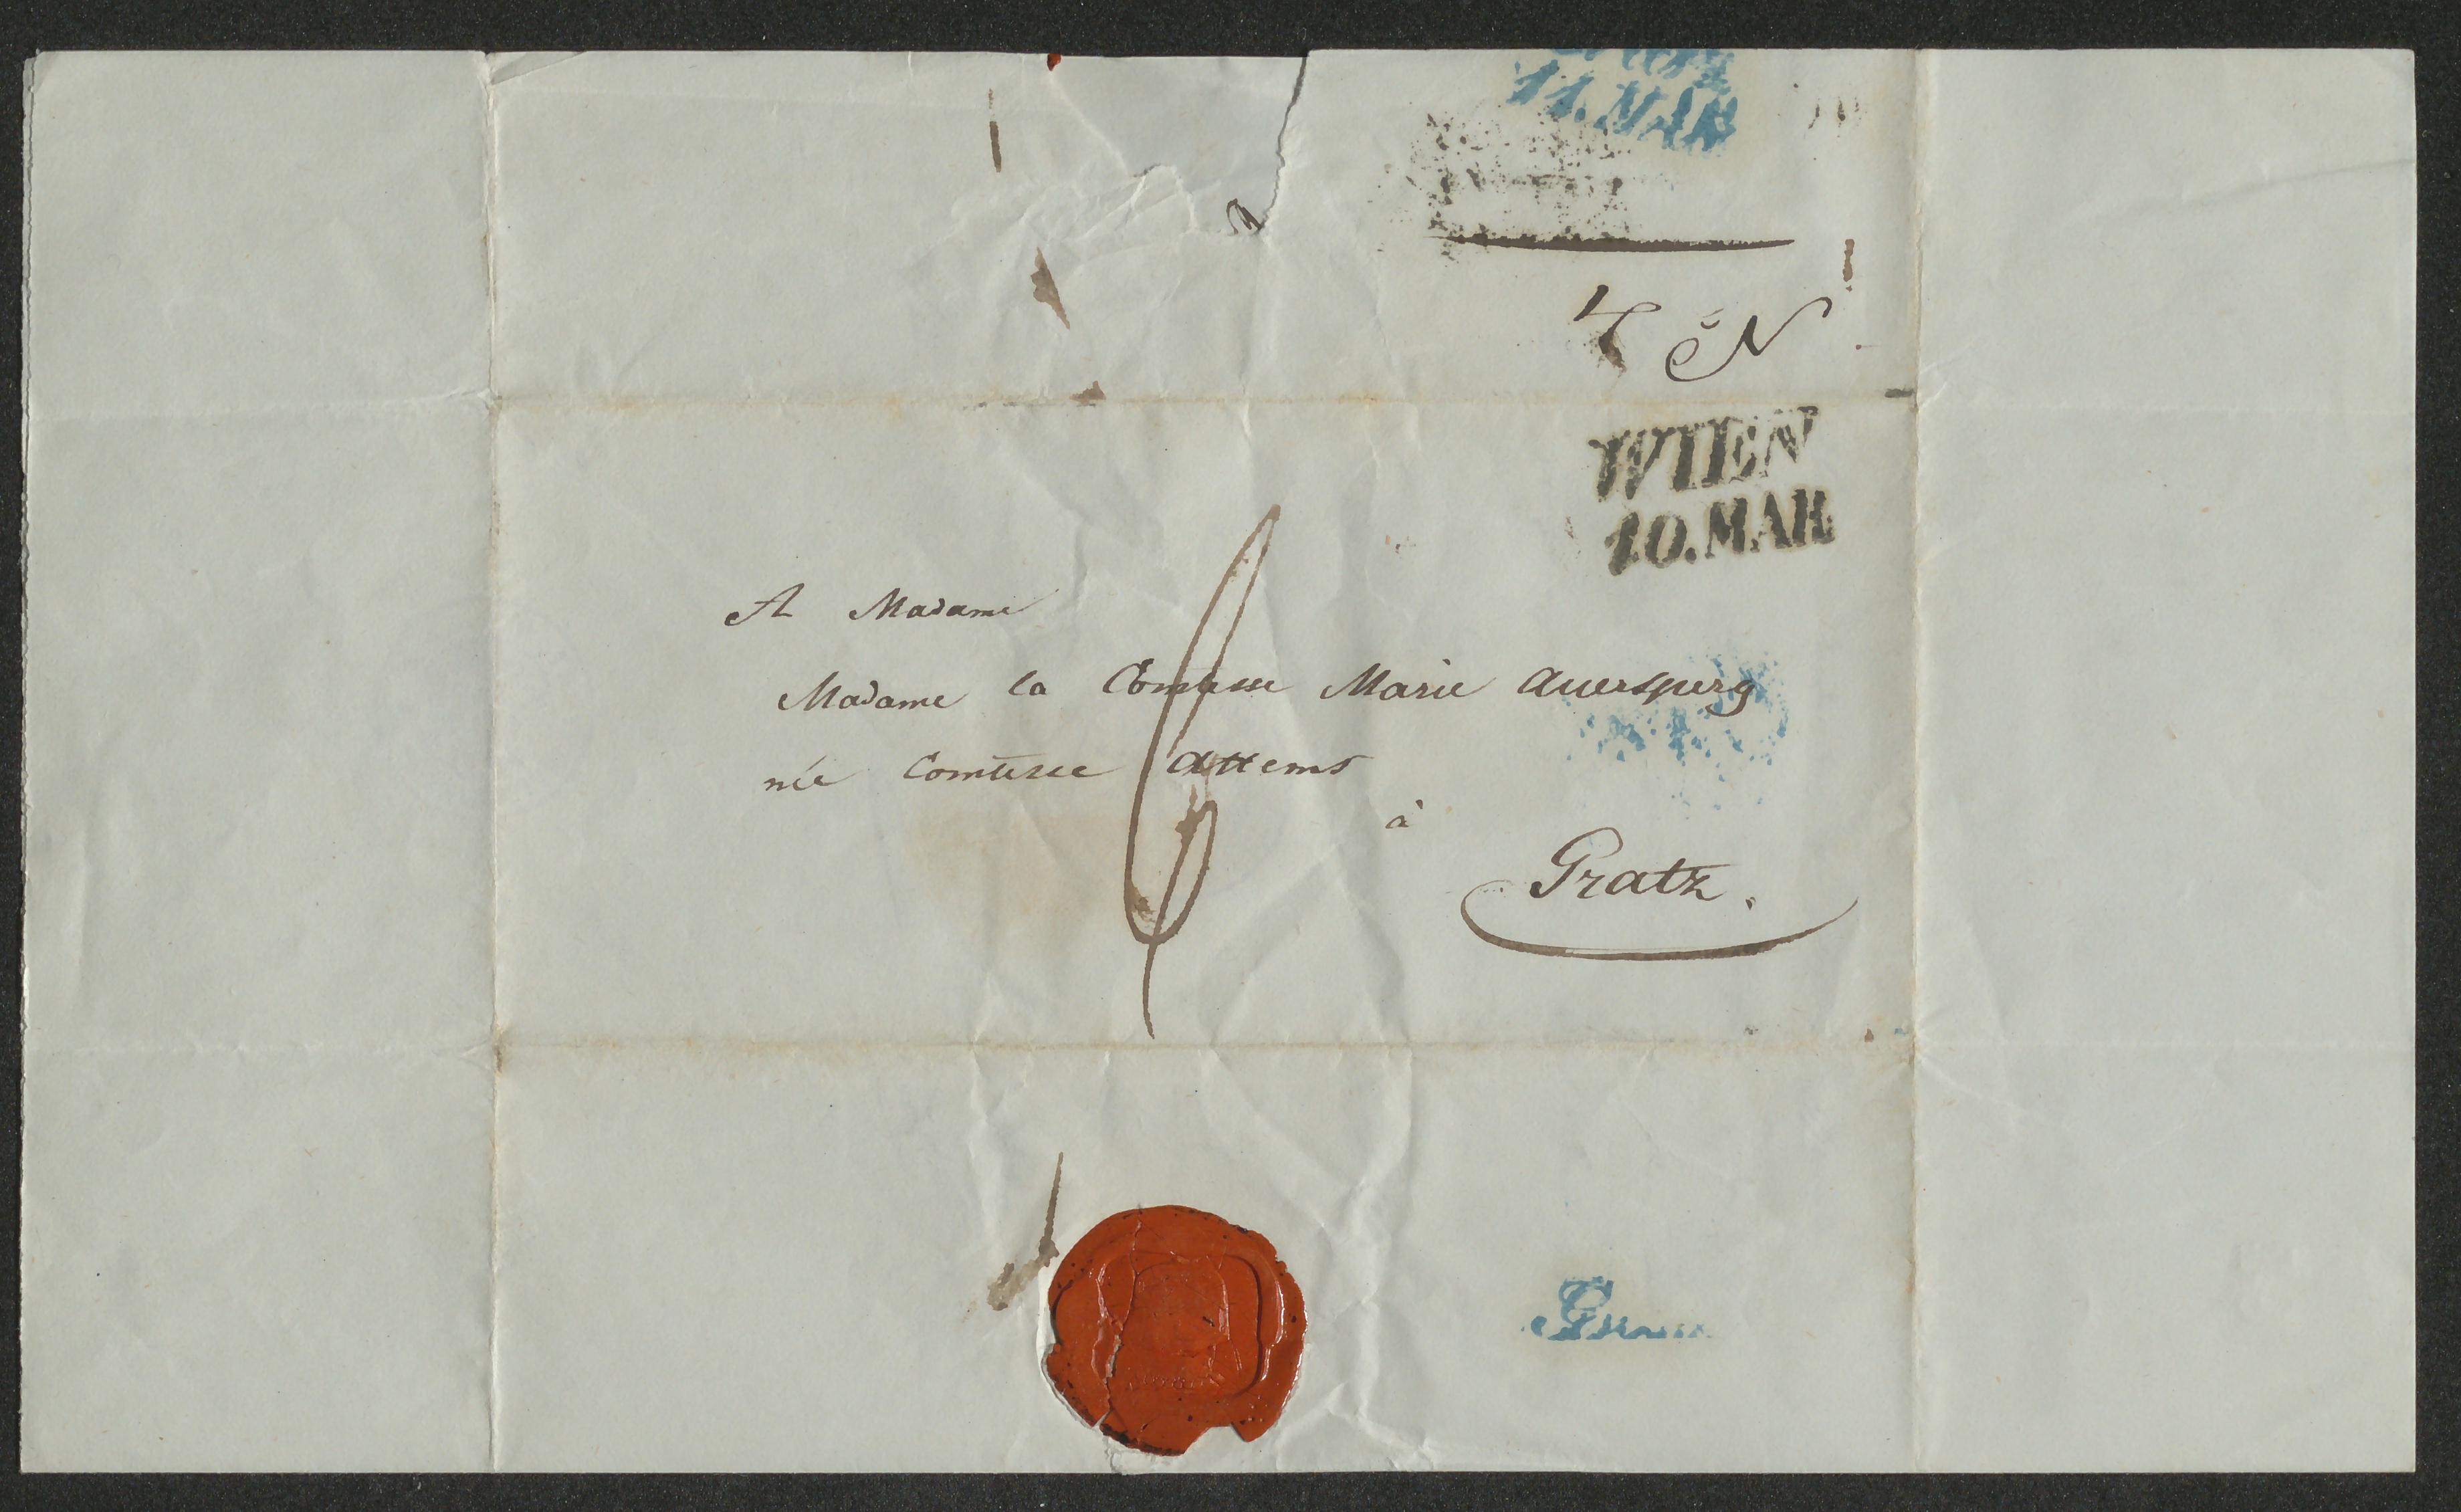 11. MAR
4 N
WIEN
10. MAR
A Madame
Madame la Comtesse Marie Auersperg
née Comtesse Attems
à
Gratz.
6